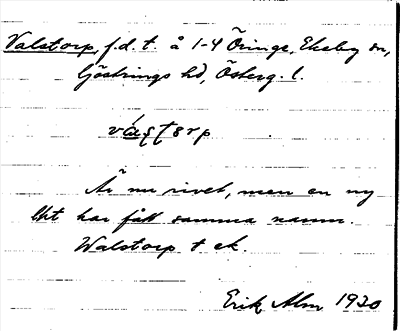 Valstorp, f.d. t. å 1-4 Öringe, Ekeby sn,
Göstrings hd, Österg. l.
Är nu rivet, men en ny
lht har fått samma namn.
Walstorp t ek.
Erik Alm 1930